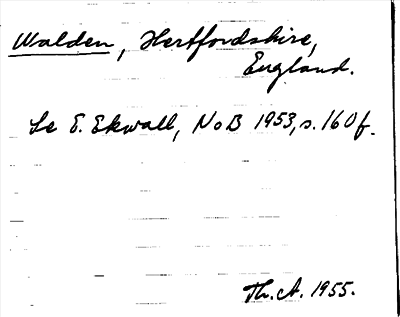 Walden, Hertfordshire,
England.
Se E. Ekwall, NoB 1953, s. 160 f.
Th. A. 1955.